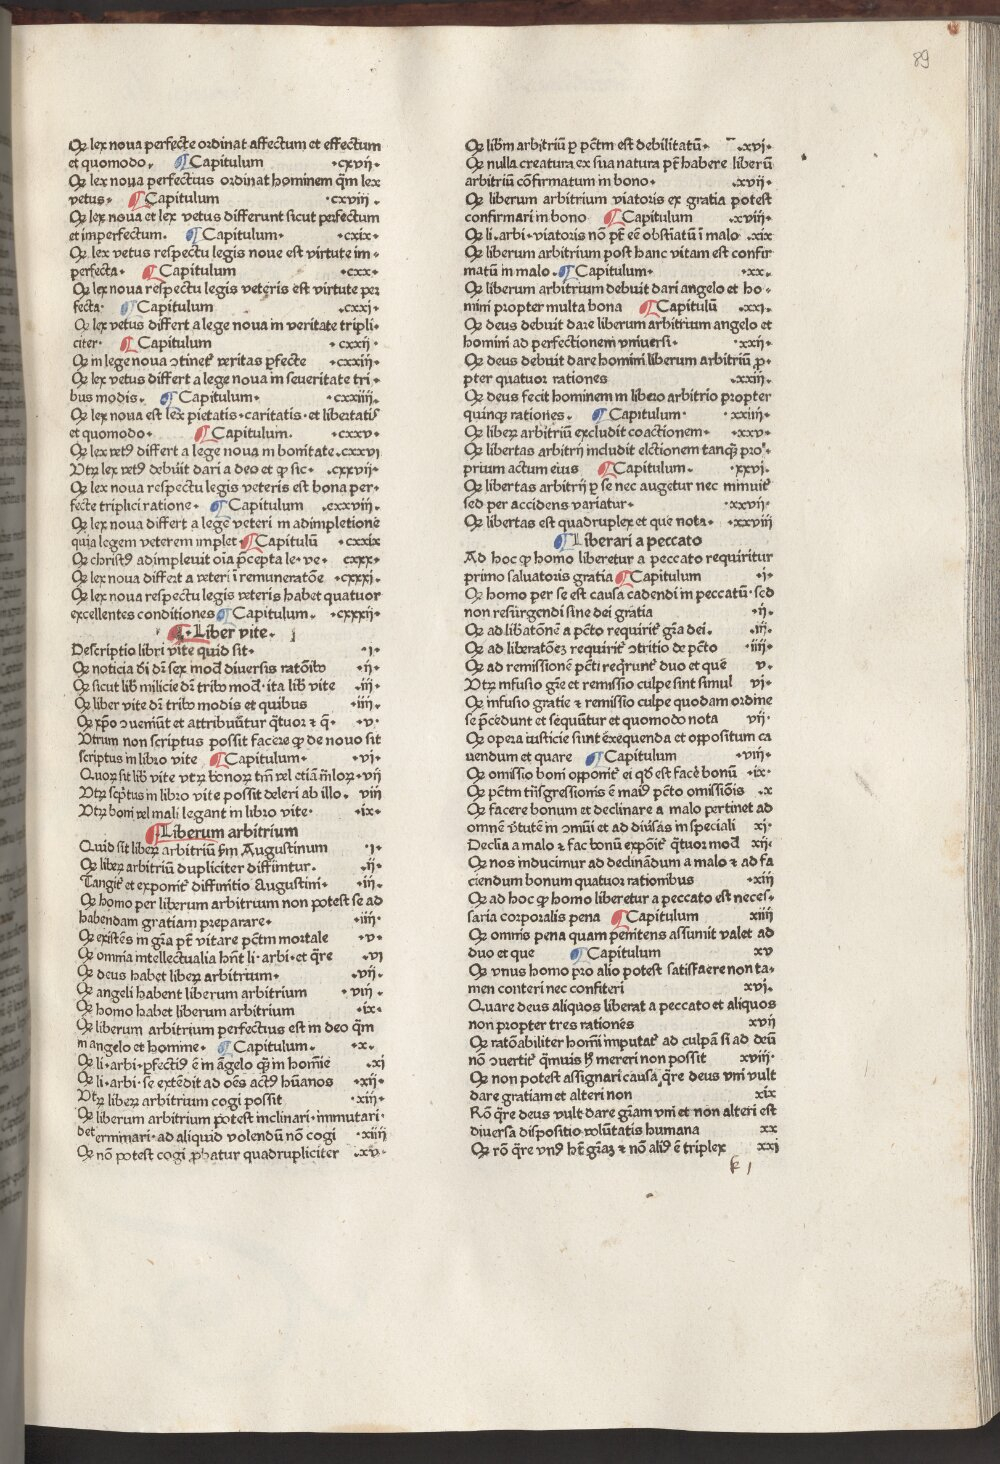 89
Qꝫ lex noua perfecte ordinat affectum et effectum
et quomodo. ¶ Capitulum ·cxvij·
Qꝫ lex noua perfectius ordinat hominem q̃m lex
vetus· ¶ Capitulum ·cxviij·
Qꝫ lex noua et lex vetus differunt sicut perfectum
et imperfectum. ¶ Capitulum· ·cxix·
Qꝫ lex vetus respectu legis noue est virtute im·
perfecta· ¶ Capitulum ·cxx·
Qꝫ lex noua respectu legis veteris est virtute per
fecta· ¶ Capitulum ·cxxi·
Qꝫ lex vetus differt a lege noua in veritate tripli·
citer· ¶ Capitulum ·cxxij·
Qꝫ in lege noua ɔtinet᷑ veritas ꝑfecte ·cxxiij·
Qꝫ lex vetus differt a lege noua in seueritate tri·
bus modis. ¶ Capitulum· ·cxxiiij·
Qꝫ lex noua est lex pietatis·caritatis·et libertatis
et quomodo· ¶ Capitulum. ·cxxv·
Qꝫ lex vet⁹ differt a lege noua in bonitate.cxxvi
Vtrꝫ lex vet⁹ debuit dari a deo et ꝙ sic· .cxxvij·
Qꝫ lex noua respectu legis veteris est bona per·
fecte triplici ratione· ¶ Capitulum .cxxviij.
Qꝫ lex noua differt a lege veteri in adimpletione
quia legem veterem implet ¶ Capitulũ ·cxxix
Qꝫ christ⁹ adimpleuit oĩa p̃cepta le·ve· cxxx·
Qꝫ lex noua differt a veteri ĩ remuneratõe ·cxxxi·
Qꝫ lex noua respectu legis veteris habet quatuor
excellentes conditiones ¶ Capitulum. ·cxxxij·
¶·Liber vite·
Descriptio libri vite quid sit· ·i·
Qꝫ noticia d̃i dr̃ sex mod̃ diuersis ratõibꝫ ·ij·
Qꝫ sicut lib̃ milicie dr̃ tribꝫ mod̃·ita lib̃ vite ·iij·
Qꝫ liber vite dr̃ tribꝫ modis et quibus ·iiij·
Qꝫ xp̃o ɔueniũt et attribuũtur q̃tuor ⁊ q̃· ·v·
Vtrum non scriptus possit facere ꝙ de nouo sit
scriptus in libro vite ¶ Capitulum· ·vi·
Quoꝝ sit lib̃ vite vtrꝫ bonoꝝ tm̃ vel etiã m̃loꝝ·vij
Vtrꝫ sc̃pt⁹ in libro vite possit deleri ab illo. viij
Vtrꝫ boni vel mali legant in libro vite· ·ix·
¶Liberum arbitrium
Quid sit liberꝫ arbitriũ ẞm Augustinum ·i·
Qꝫ liberꝫ arbitriũ dupliciter diffinitur. ·ij·
Tangit᷑ et exponit᷑ diffinitio Augustini· ·iij·
Qꝫ homo per liberum arbitrium non potest se ad
habendam gratiam preparare· ·iiij·
Qꝫ existẽs in gr̃a pt̃ vitare pc̃tm mortale ·v·
Qꝫ omnia intellectualia hñt li·arbi·et q̃re ·vi
Qꝫ deus habet liberꝫ arbitrium· ·vij·
Qꝫ angeli habent liberum arbitrium ·viij·
Qꝫ homo habet liberum arbitrium ·ix·
Qꝫ liberum arbitrium perfectius est in deo q̃m
in angelo et homine· ¶ Capitulum· ·x·
Qꝫ li·arbi·ꝑfecti⁹ ẽ in ãgelo q̃m in homĩe ·xi
Qꝫ li·arbi·se extẽdit ad oẽs act⁹ hũanos ·xij·
Vtrꝫ liberꝫ arbitrium cogi possit ·xiij·
Qꝫ liberum arbitrium potest inclinari·immutari·
determinari·ad aliquid volendũ nõ cogi ·xiiij
Qꝫ nõ potest cogi ꝓbatur quadrupliciter .xv·
Qꝫ lib̃m arbitriũ ꝑ pc̃tm est debilitatũ· .xvi·
Qꝫ nulla creatura ex sua natura pt̃ habere liberũ
arbitriũ cõfirmatum in bono· .xvij·
Qꝫ liberum arbitrium viatoris ex gratia potest
confirmari in bono ¶ Capitulum .xviij·
Qꝫ li.arbi·viatoris nõ pt̃ eẽ obstiatũ ĩ malo .xix
Qꝫ liberum arbitrium post hanc vitam est confir
matũ in malo.¶ Capitulum· ·xx·
Qꝫ liberum arbitrium debuit dari angelo et ho·
mini propter multa bona ¶ Capitulũ .xxi.
Qꝫ deus debuit dare liberum arbitrium angelo et
homini ad perfectionem vniuersi· ·xxij·
Qꝫ deus debuit dare homini liberum arbitriũ ꝓ·
pter quatuor rationes .xxiij.
Qꝫ deus fecit hominem in libero arbitrio propter
quinqꝫ rationes. ¶ Capitulum· ·xxiiij·
Qꝫ liberꝫ arbitriũ excludit coactionem· ·xxv·
Qꝫ libertas arbitrij includit elc̃tionem tanqꝫ pro·
prium actum eius ¶ Capitulum. .xxvi.
Qꝫ libertas arbitrij ꝑ se nec augetur nec minuit᷑
sed per accidens variatur· ·xxvij·
Qꝫ libertas est quadruplex et que nota· ·xxviij
¶Liberari a peccato
Ad hoc ꝙ homo liberetur a peccato requiritur
primo saluatoris gratia ¶ Capitulum ·i·
Qꝫ homo per se est causa cadendi in peccatũ·sed
non resurgendi sine dei gratia ·ij·
Qꝫ ad lib̃atõnẽ a pc̃to requirit᷑ gr̃a dei. .iij.
Qꝫ ad liberatõeꝫ requirit᷑ ɔtritio de pc̃to ·iiij·
Qꝫ ad remissionẽ pc̃ti req̃runt᷑ duo et que v.
Vtrꝫ infusio gr̃e et remissio culpe sint simul vi·
Qꝫ infusio gratie ⁊ remissio culpe quodam ordine
se p̃cedunt et sequũtur et quomodo nota vij·
Qꝫ opera iusticie sunt exequenda et oppositum ca
uendum et quare ¶ Capitulum ·viij·
Qꝫ omissio boni opponit᷑ ei qđ est facẽ bonũ ·ix·
Qꝫ pc̃tm trñsgressionis ẽ mai⁹ pc̃to omissiõis .x
Qꝫ facere bonum et declinare a malo pertinet ad
omnẽ v̉tutẽ in ɔmũi et ad diũsas in speciali xi·
Declia a malo ⁊ fac bonũ expõit᷑ q̃tuor mod̃ xij·
Qꝫ nos inducimur ad declinãdum a malo ⁊ ad fa
ciendum bonum quatuor rationibus ·xiij
Qꝫ ad hoc ꝙ homo liberetur a peccato est neces·
saria corporalis pena ¶ Capitulum xiiij
Qꝫ omnis pena quam penitens assumit valet ad
duo et que ¶ Capitulum xv
Qꝫ vnus homo pro alio potest satisfaere non ta·
men conteri nec confiteri xvi.
Quare deus aliquos liberat a peccato et aliquos
non propter tres rationes xvij
Qꝫ ratõabiliter homĩ imputat᷑ ad culpã si ad deũ
nõ ɔuertit᷑ q̃muis hͦ mereri non possit xviij·
Qꝫ non potest assignari causa q̃re deus vni vult
dare gratiam et alteri non xix
Rõ q̃re deus vult dare gr̃am vni et non alteri est
diuersa dispositio volũtatis humana xx
Qꝫ rõ q̃re vn⁹ hꝫ gr̃aꝫ ⁊ nõ ali⁹ ẽ triplex xxi
k j